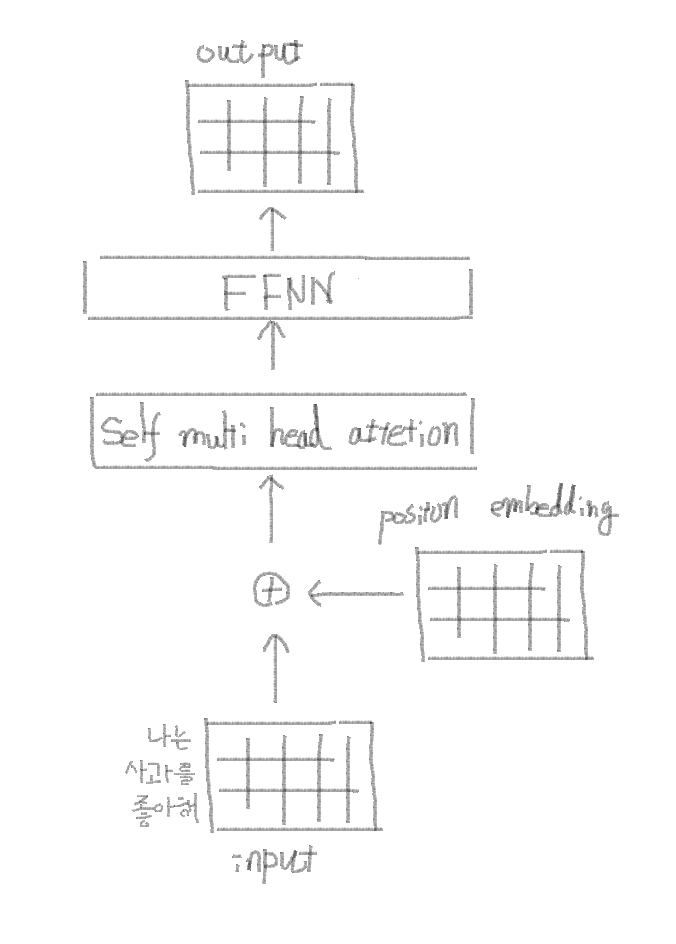 output
FFNN
Self multi head attetion
positon embedding
+
나는
사과를
좋아해
input